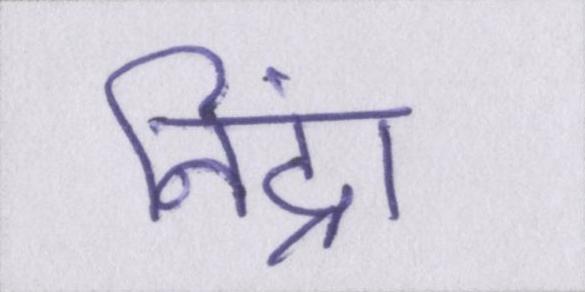 निंद्रा